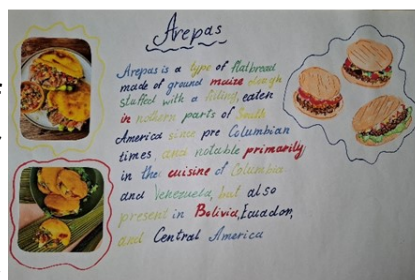 Arepas
Arepas is a type of flatbread
made of ground maize dough
stuffed with a filling, eaten
in nothern parts of South
America since pre Columbian
times, and notable primarily
in the cuisine of Columbia
and Venezuela, but also
present in Bolivia, Ecuador,
and Central America